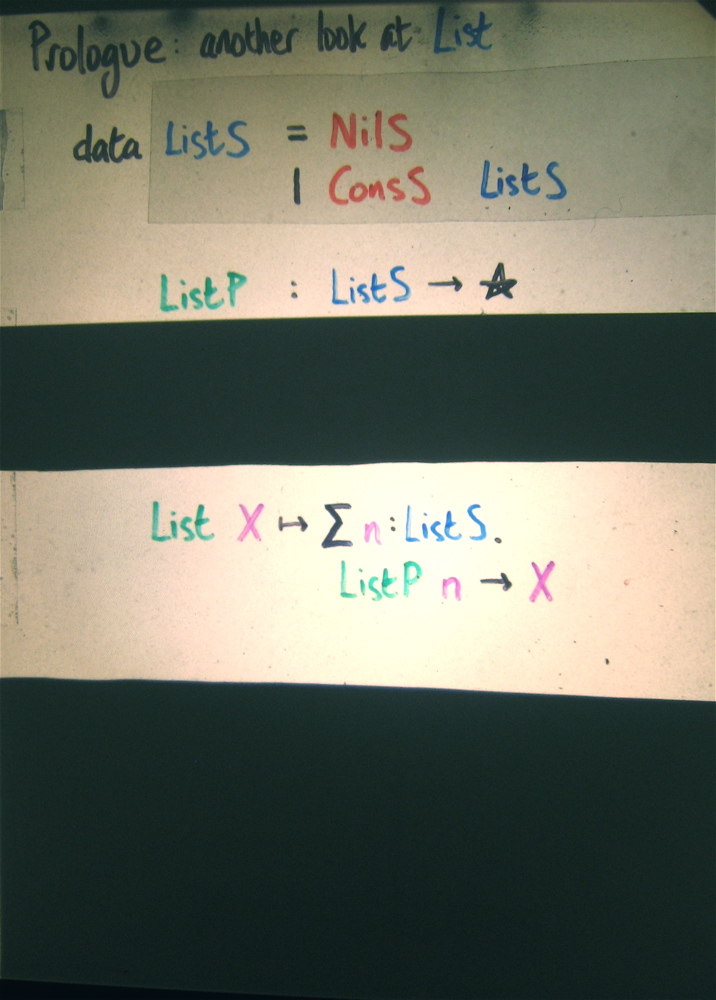 Prologue: another look at List
data ListS = NilS
| ConsS ListS
ListP : ListS → ★
List X ↦ Σ n:ListS.
ListP n → X